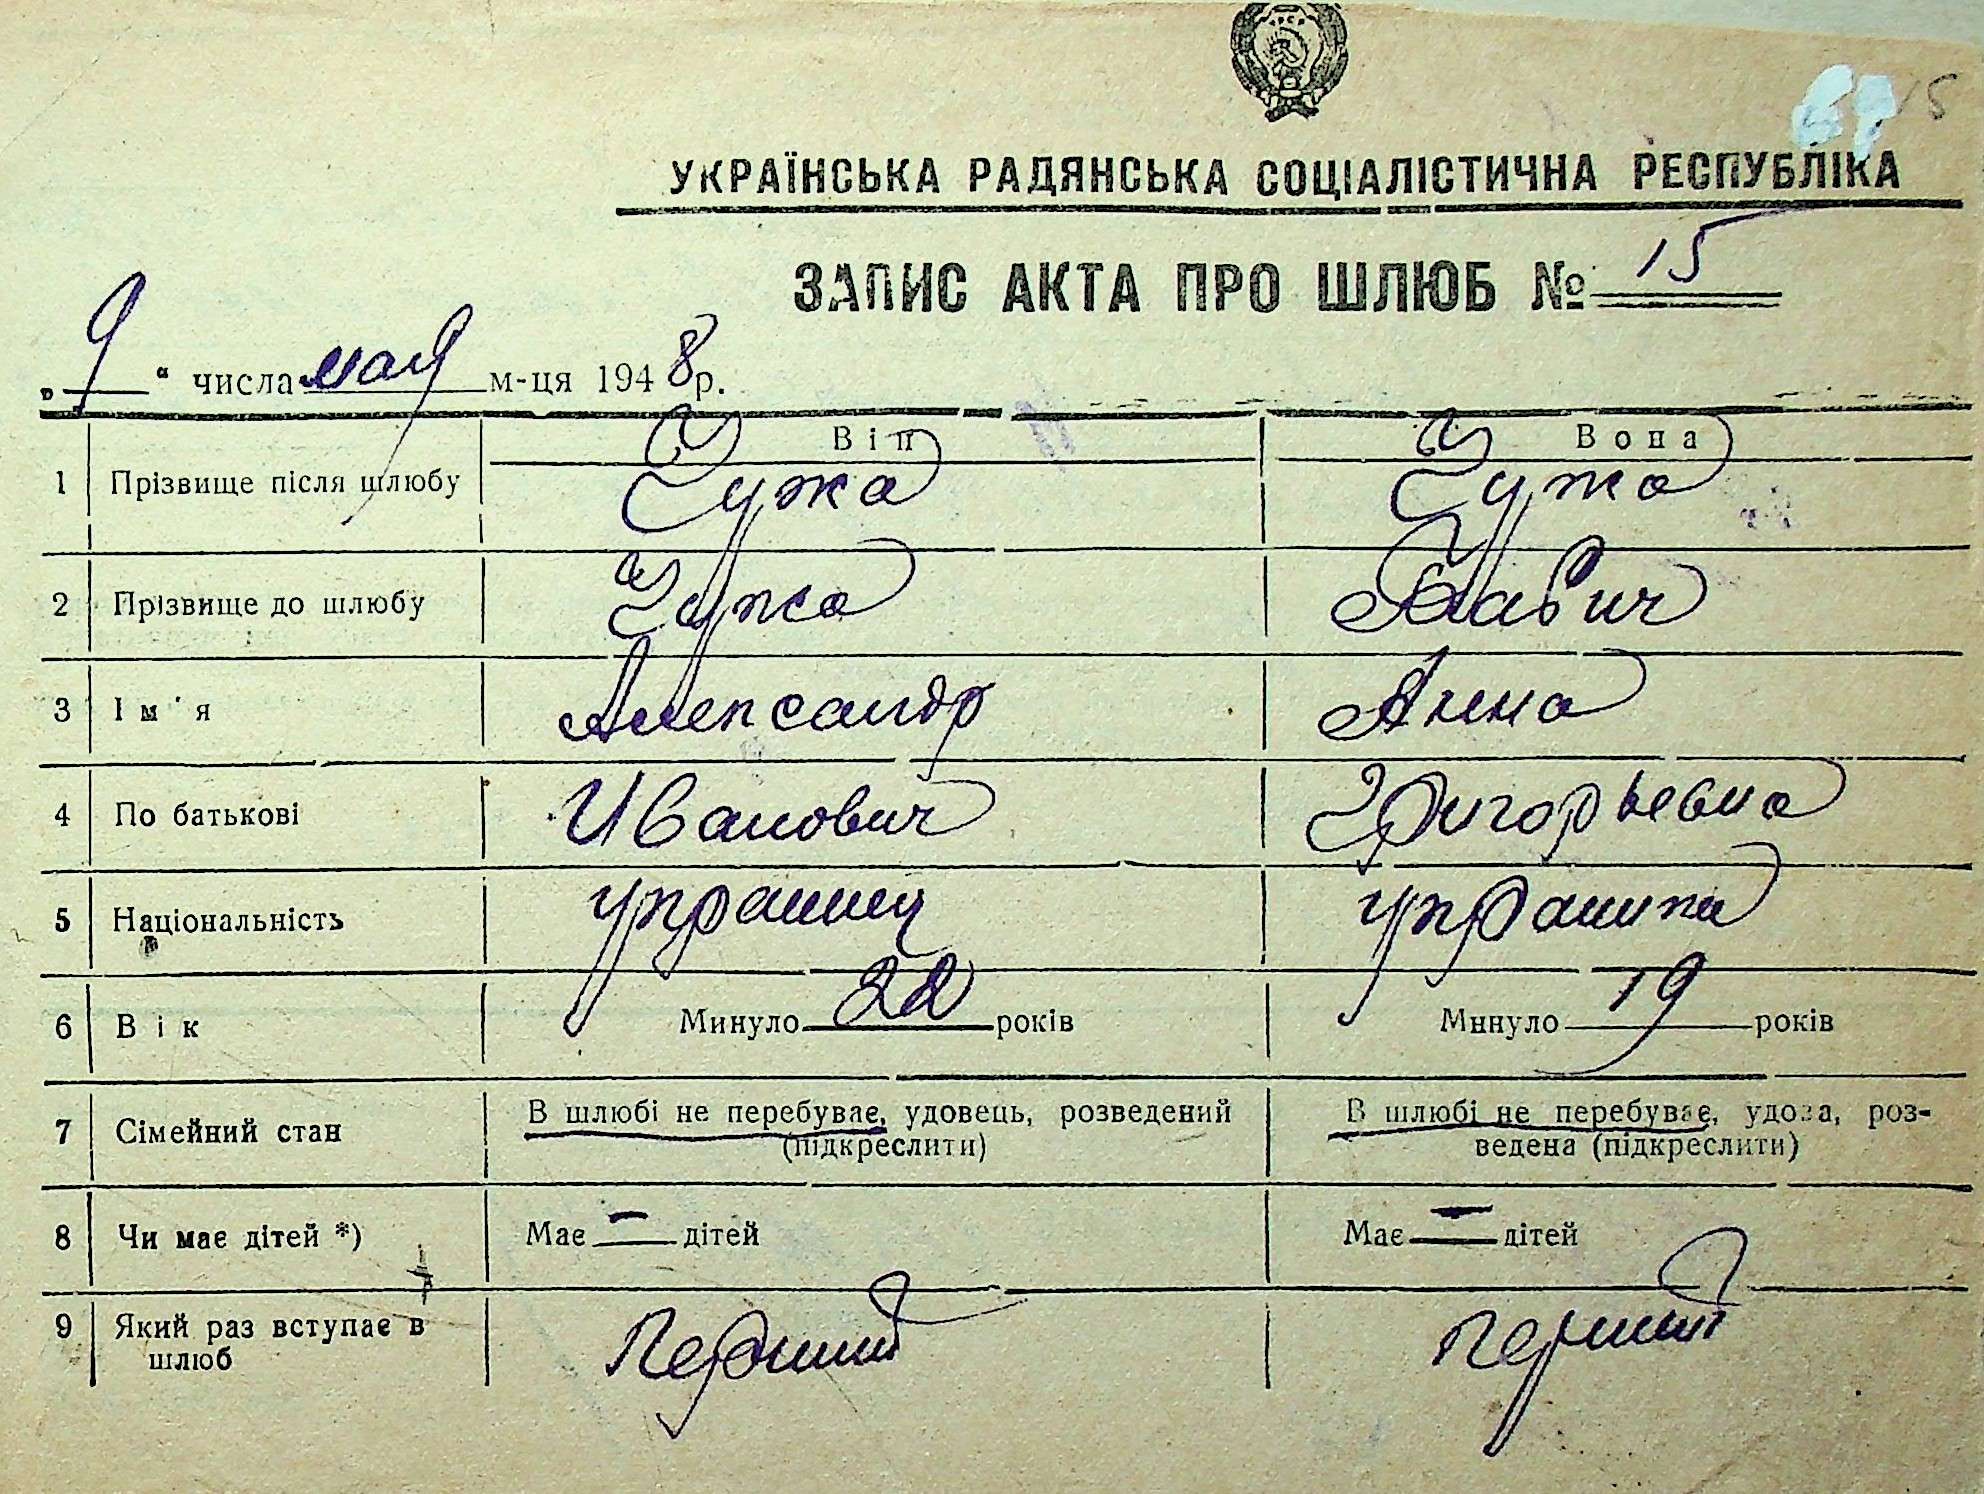 15
УКРАЇНСЬКА РАДЯНСЬКА СОЦІАЛІСТИЧНА РЕСПУБЛІКА
ЗАПИС АКТА ПРО ШЛЮБ № 15
„9“ числа мая м-ця 1948 р.
Він Вона
1 Прізвище після шлюбу Чужа Чужа
2 Прізвище до шлюбу Чужа Бабич
3 Ім'я Александр Анна
4 По батькові Иванович Григорьевна
5 Національність украинец украинка
6 Вік Минуло 22 років Минуло 19 років
7 Сімейний стан В шлюбі не перебуває, удовець, розведений В шлюбі не перебуває, удова, роз-
(підкреслити) ведена (підкреслити)
8 Чи має дітей *) Має — дітей Має — дітей
9 Який раз вступає в
шлюб перший перший